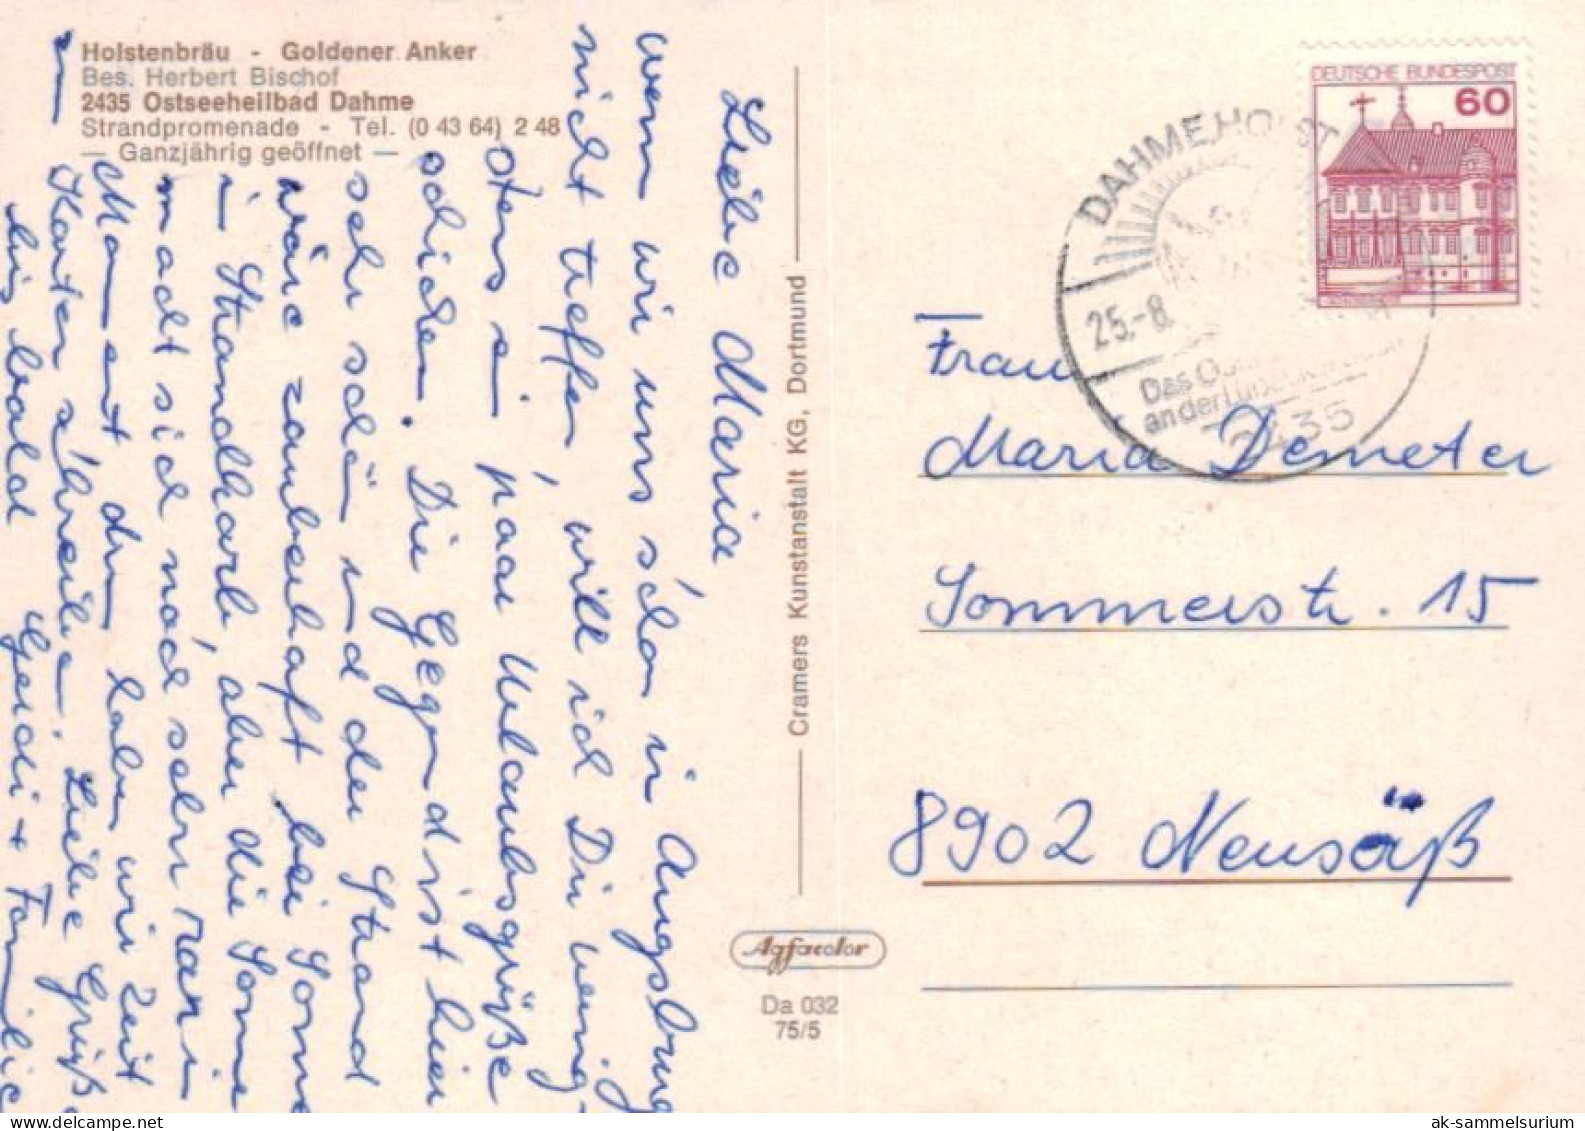 Holstenbräu - Goldener Anker
Bes. Herbert Bischof
2435 Ostseeheilbad Dahme
Strandpromenade - Tel. (0 43 64) 2 48
— Ganzjährig geöffnet —
Liebe Maria,
wenn wir uns schon in Augsburg
nicht treffen, will ich Dir wenig-
stens ein paar Urlaubsgrüße
schicken. Die Gegend ist hier
sehr schön und der Strand
wäre zauberhaft bei Sonne
im Strandkorb, aber die Sonne
macht sich noch sehr rar. Im
Moment drum haben wir Zeit
Karten schreiben. Liebe Grüße
bis bald Heidi + Familie
Cramers Kunstanstalt KG, Dortmund
Agfacolor
Da 032
75/5
DEUTSCHE BUNDESPOST
60
DAHME, HOLST
25.-8.
Das
an der
2435
Frau
Maria Demeter
Sommerstr. 15
8902 Neusäß
www.delcampe.net
ak-sammelsurium